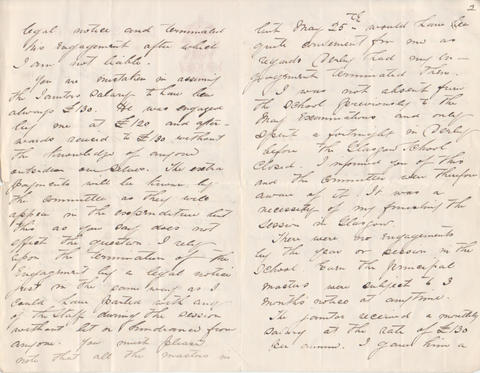 legal notice and terminated
his engagement after which
I am not liable.
You are mistaken in assuming
the Janitors salary to have been
always £130. He was engaged
by me at £120 and after-
wards raised to £130 without
the knowledge of anyone
outside our selves. The extra
payments will be known by
the Committee as they will
appear in the expenditure but
this as you say does not
affect the question I rely
upon the termination of the
Engagement by a legal notice
just in the same way as I
could have parted with any
of the staff during the session
without let or hindrance from
anyone. You must please
note that all the masters in
2
but May 25th would have been
quite convenient for me as
regards Derby had my en-
gagement terminated then.
I was not absent from
the School previously to the
May Examinations and only
spent a fortnight in Derby
before the Glasgow School
closed. I informed you of this
and the Committee were therefore
aware of it. It was a
necessity of my finishing the
session in Glasgow.
There were no Engagements
by the year or session in the
School. Even the principal
masters were subject to 3
months notice at anytime.
The janitor received a monthly
salary at the rate of £130
per annum. I gave him a